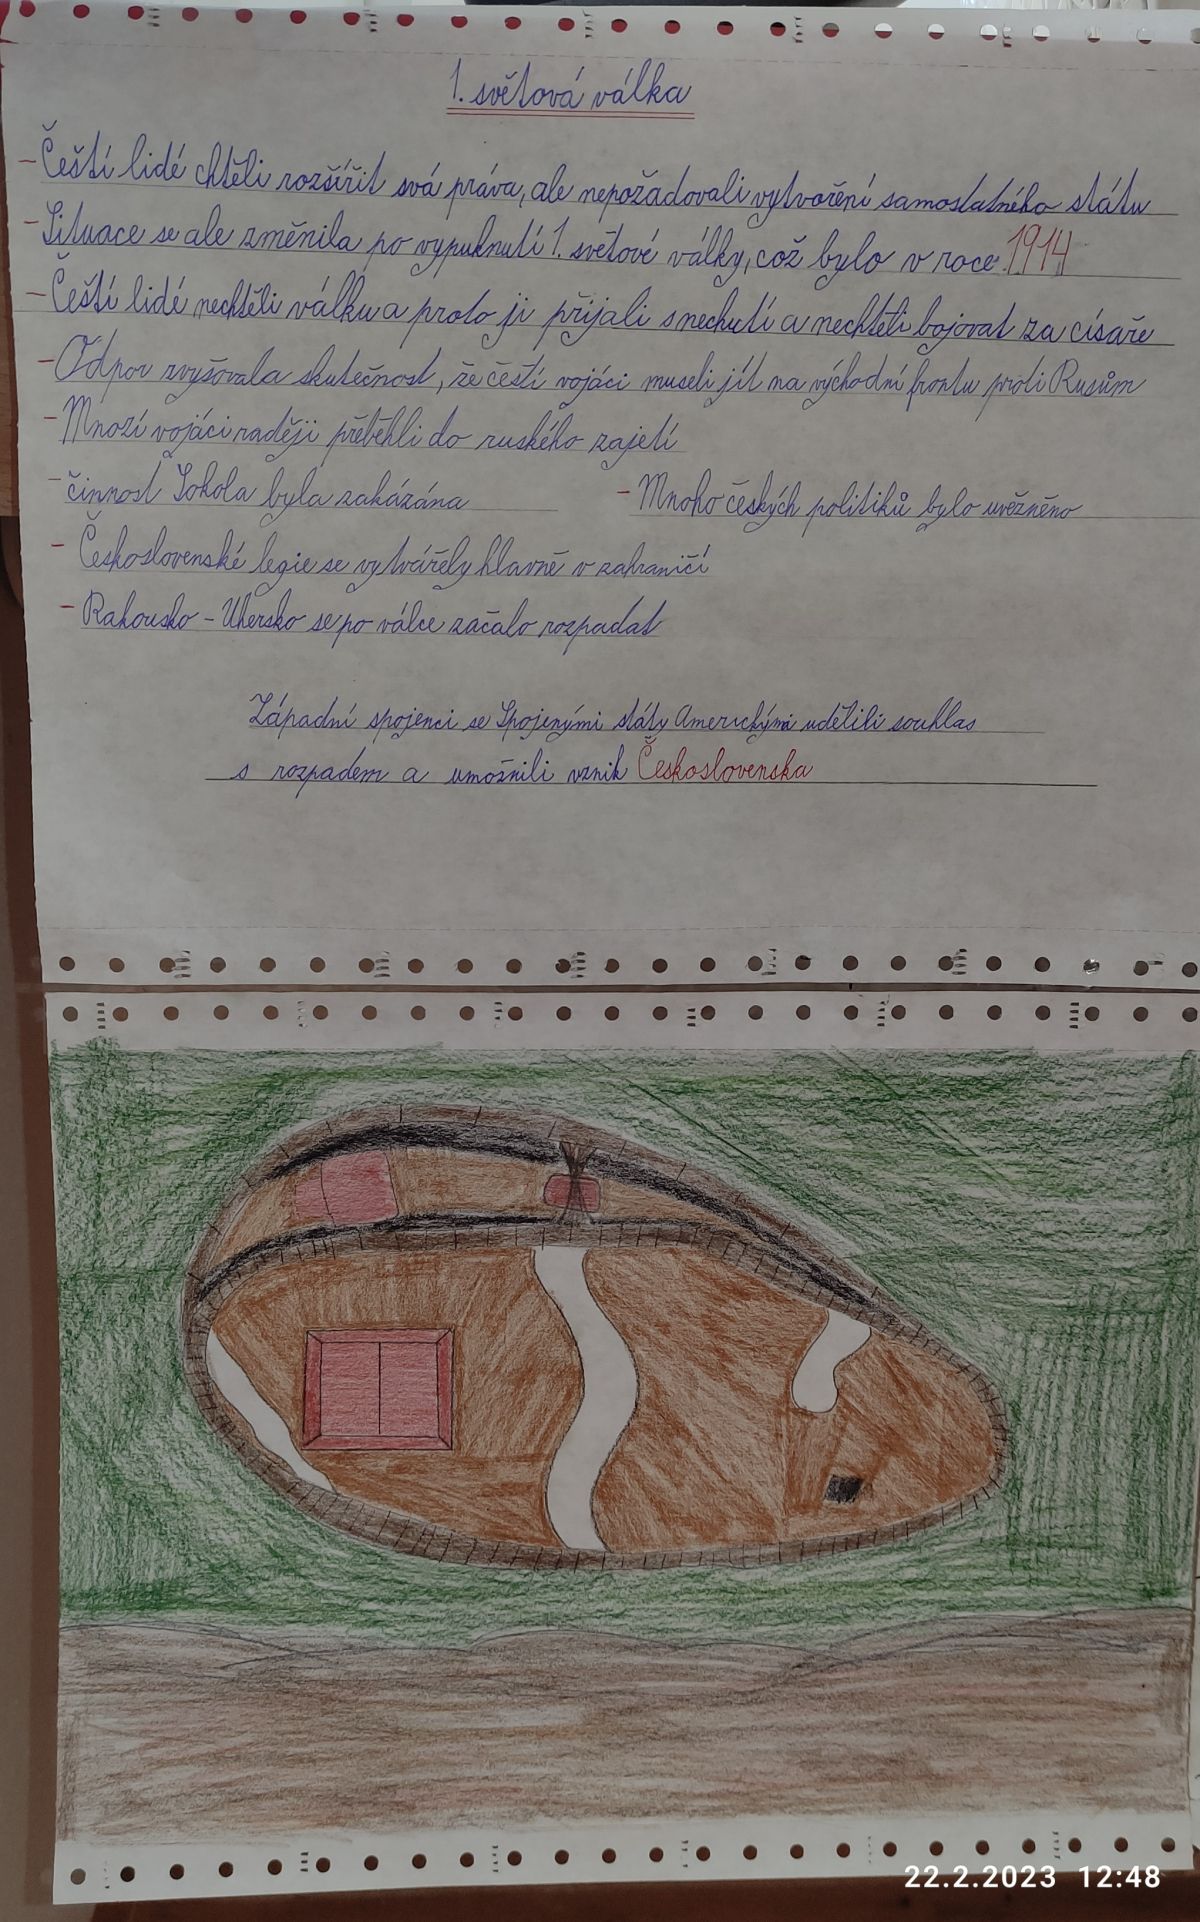 1. světová válka
- Čeští lidé chtěli rozšířit svá práva, ale nepožadovali vytvoření samostatného státu
- Situace se ale změnila po vypuknutí 1. světové války, což bylo v roce 1914
- Čeští lidé nechtěli válku a proto ji přijali s nechutí a nechtěli bojovat za císaře
- Odpor zvyšovala skutečnost, že čeští vojáci museli jít na východní frontu proti Rusům
- Mnozí vojáci raději přeběhli do ruského zajetí
- činnost Sokola byla zakázána - Mnoho českých politiků bylo uvězněno
- Československé legie se vytvářely hlavně v zahraničí
- Rakousko - Uhersko se po válce začalo rozpadat
Západní spojenci se Spojenými státy Americkými udělili souhlas
s rozpadem a umožnili vznik Československa
22.2.2023 12:48